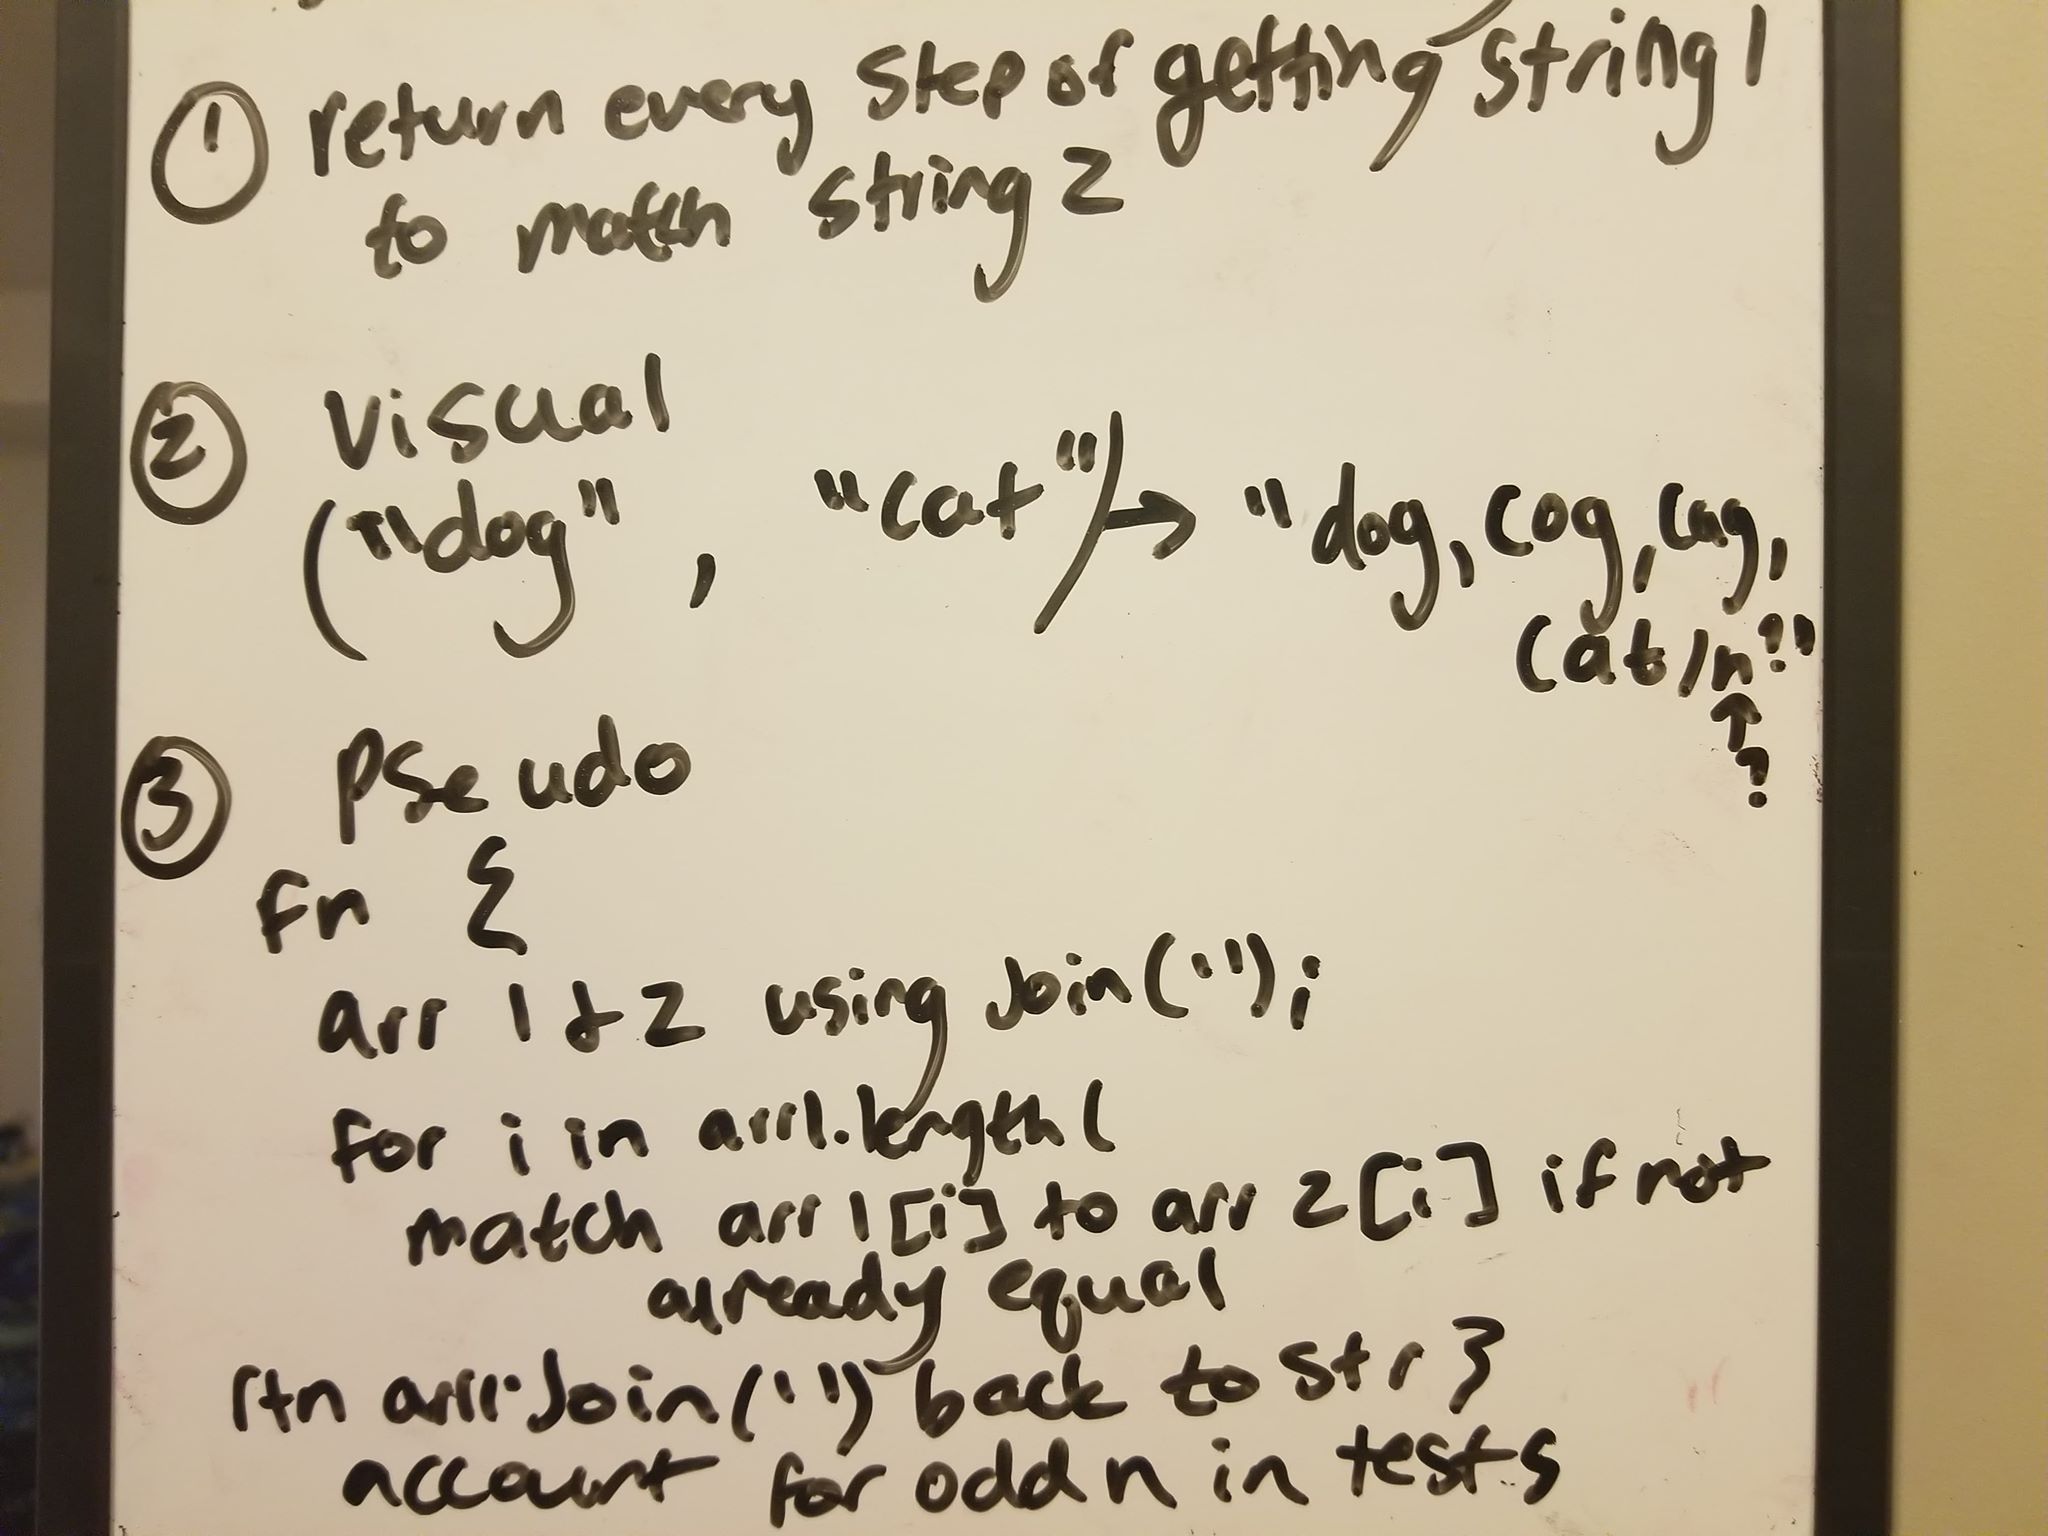 ① return every step of getting string 1
to match string 2
② visual
("dog", "cat") → "dog, cog, cag,
cat/n?"
↑
?
③ pseudo
fn {
arr 1 & 2 using Join('');
for i in arr1.length(
match arr1[i] to arr2[i] if not
already equal
rtn arr.Join('') back to str }
account for odd n in tests